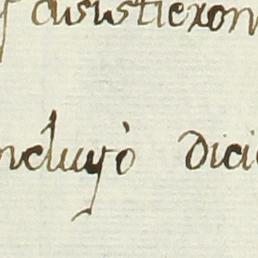 asistieron
ncluyò dici